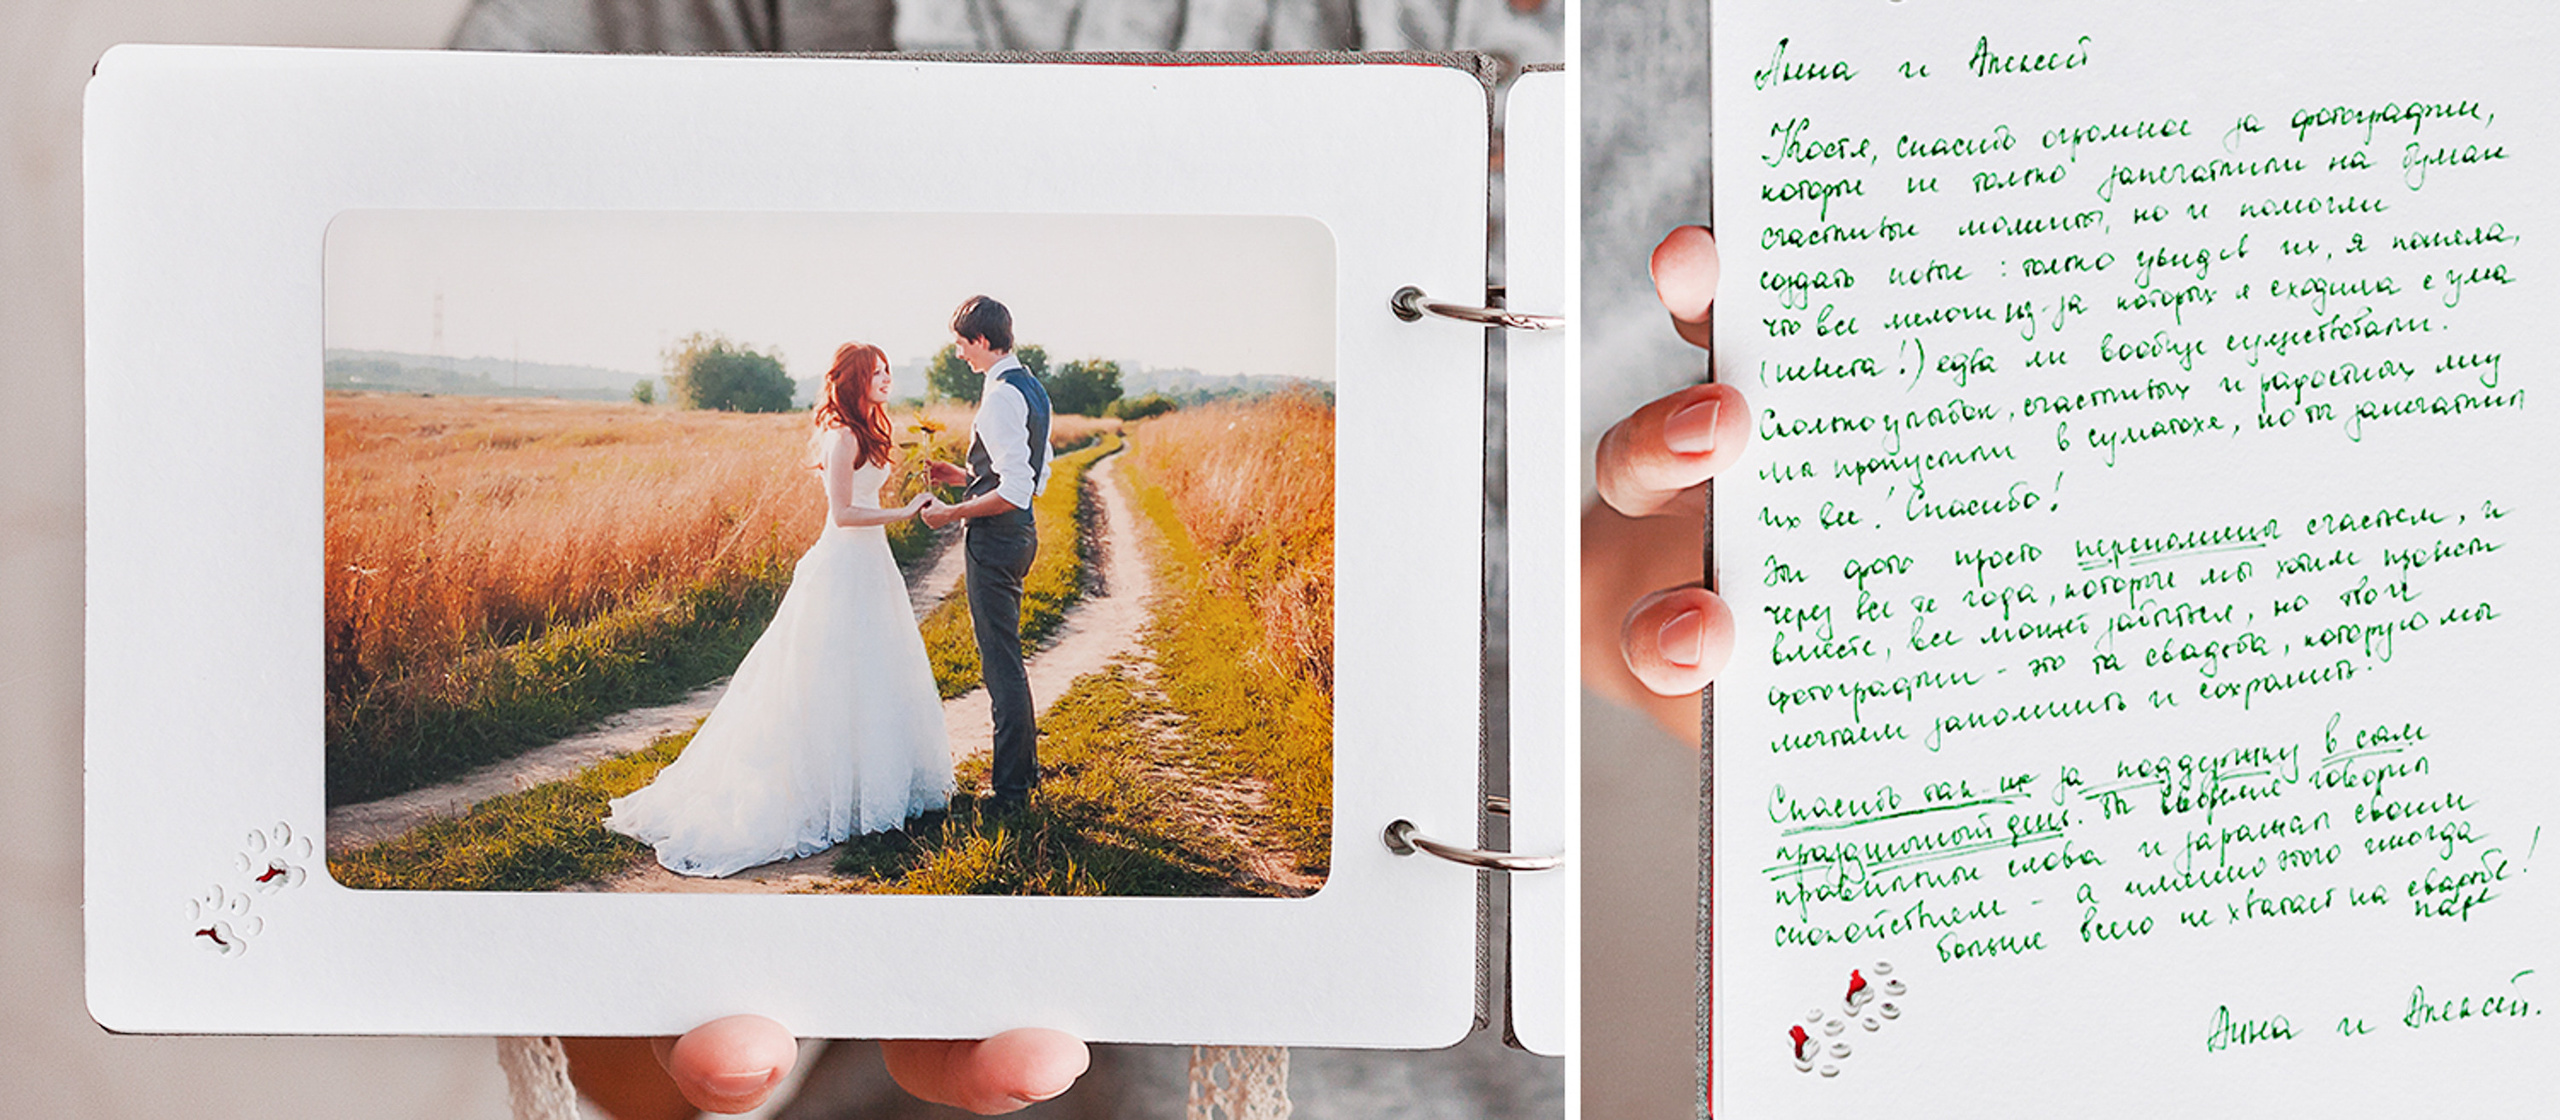 Анна и Алексей
Костя, спасибо огромное за фотографии,
которые не только запечатлели на бумаге
счастливые моменты, но и помогли
создать новые: только увидев их, я поняла,
что все мелочи из-за которых я сходила с ума
(невеста!) едва ли вообще существовали.
Сколько улыбок, счастливых и радостных лиц
мы пропустили в суматохе, но ты запечатлил
их все! Спасибо!
Эти фото просто переполнены счастьем, и
через все те года, которые мы хотим провести
вместе, все может забыться, но твои
фотографии - это та свадьба, которую мы
мечтаем запомнить и сохранить.
Спасибо так же за поддержку в сам
праздничный день. Ты говорил
правильные слова и заражал своим
спокойствием - а именно этого иногда
больше всего не хватает на свадьбе!
паре
Анна и Алексей.